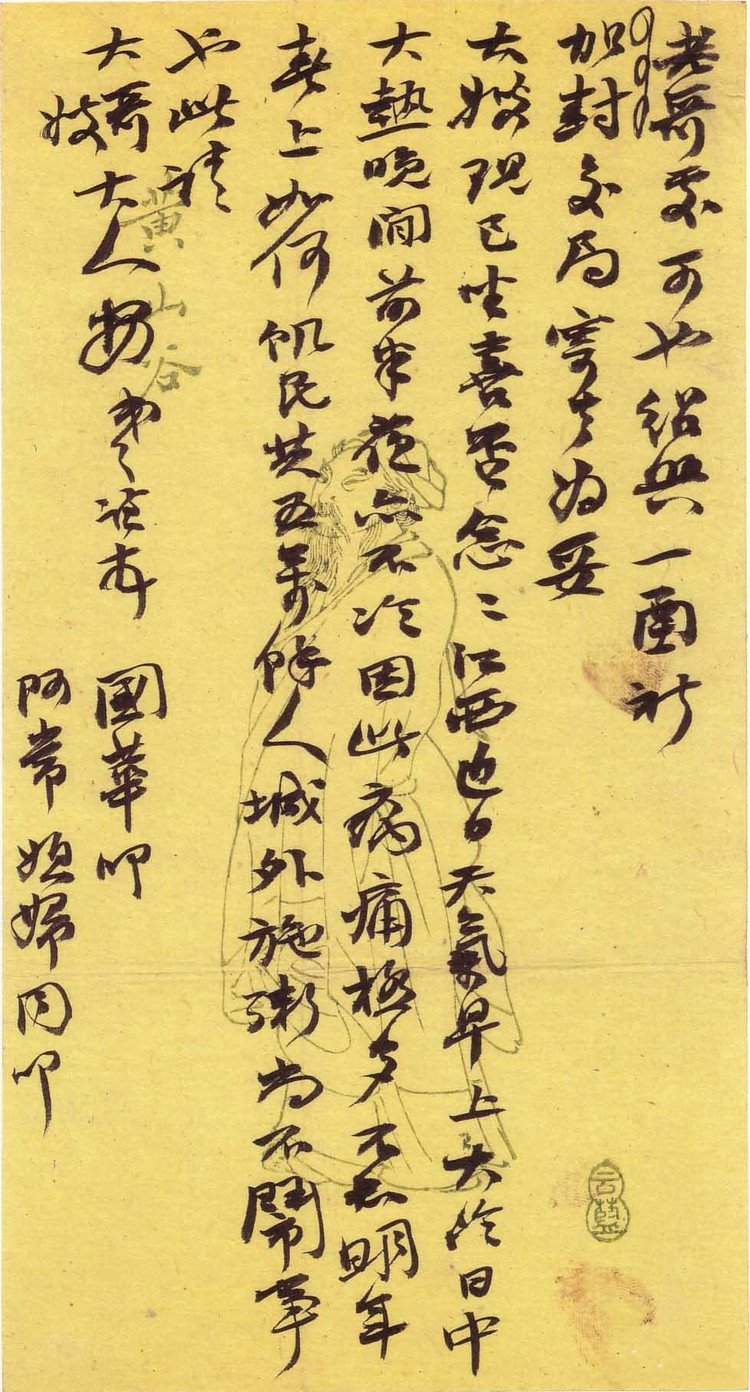 老哥處可也紹興一函祈
加封交局寄去为妥
大嫂現已坐喜否念二江西近日天氣早上大冷日中
大熱晚間前半夜亦不冷因此病痛極多不知明年
春上如何飢民共五萬餘人城外施粥尚不鬧事
也此請
大哥大人安弟
嫂
國華叩
阿常媳婦同叩
黃山谷
云藍